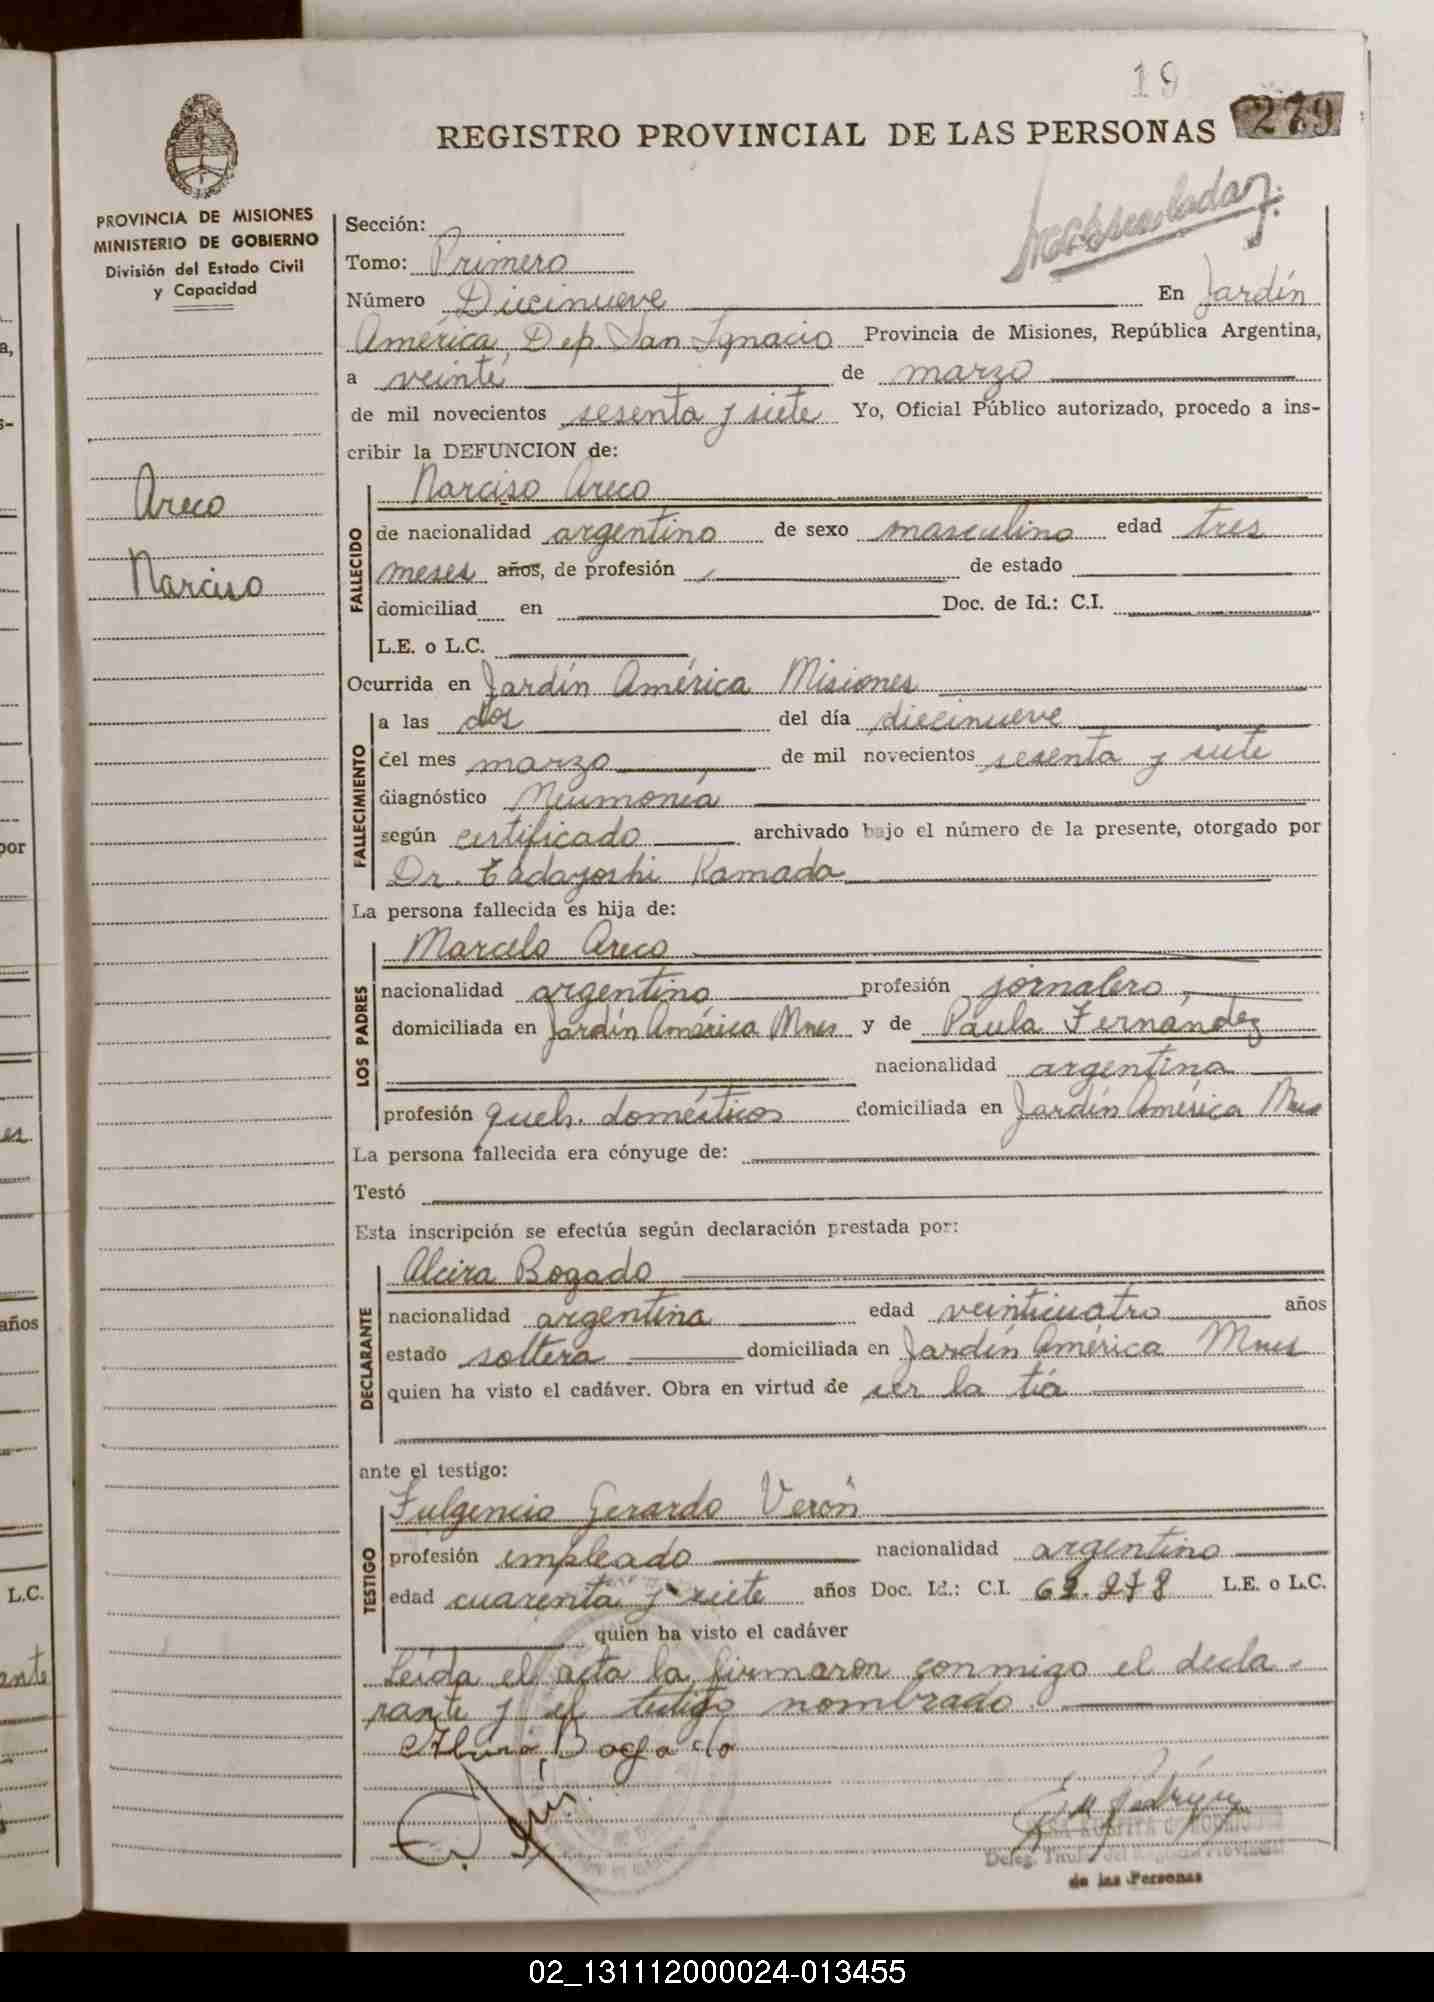 19
279
REGISTRO PROVINCIAL DE LAS PERSONAS
PROVINCIA DE MISIONES
MINISTERIO DE GOBIERNO
División del Estado Civil
y Capacidad
Areco
Narciso
Sección:
Tomo: Primero
Número Diecinueve En Jardín
América, Dep. San Ignacio Provincia de Misiones, República Argentina,
a veinte de marzo
de mil novecientos sesenta y siete Yo, Oficial Público autorizado, procedo a ins-
cribir la DEFUNCION de:
FALLECIDO
Narciso Areco
de nacionalidad argentino de sexo masculino edad tres
meses años, de profesión de estado
domiciliad en Doc. de Id.: C.I.
L.E. o L.C.
Ocurrida en Jardín América Misiones
FALLECIMIENTO
a las dos del día diecinueve
del mes marzo de mil novecientos sesenta y siete
diagnóstico Neumonía
según certificado archivado bajo el número de la presente, otorgado por
Dr. Tadayoshi Kamada
La persona fallecida es hija de:
LOS PADRES
Marcelo Areco
nacionalidad argentino profesión jornalero
domiciliada en Jardín América Mnes y de Paula Fernández
nacionalidad argentina
profesión queh. domésticos domiciliada en Jardín América Mnes
La persona fallecida era cónyuge de:
Testó
Esta inscripción se efectúa según declaración prestada por:
DECLARANTE
Alcira Bogado
nacionalidad argentina edad veinticuatro años
estado soltera domiciliada en Jardín América Mnes
quien ha visto el cadáver. Obra en virtud de ser la tía
ante el testigo:
TESTIGO
Fulgencio Gerardo Verón
profesión empleado nacionalidad argentino
edad cuarenta y siete años Doc. Id.: C.I. L.E. o L.C.
quien ha visto el cadáver
Leída el acta la firmaron conmigo el decla-
rante y el testigo nombrado.
Bogado
Deleg. Titular del Registro Provincial
de las Personas
02_131112000024-013455